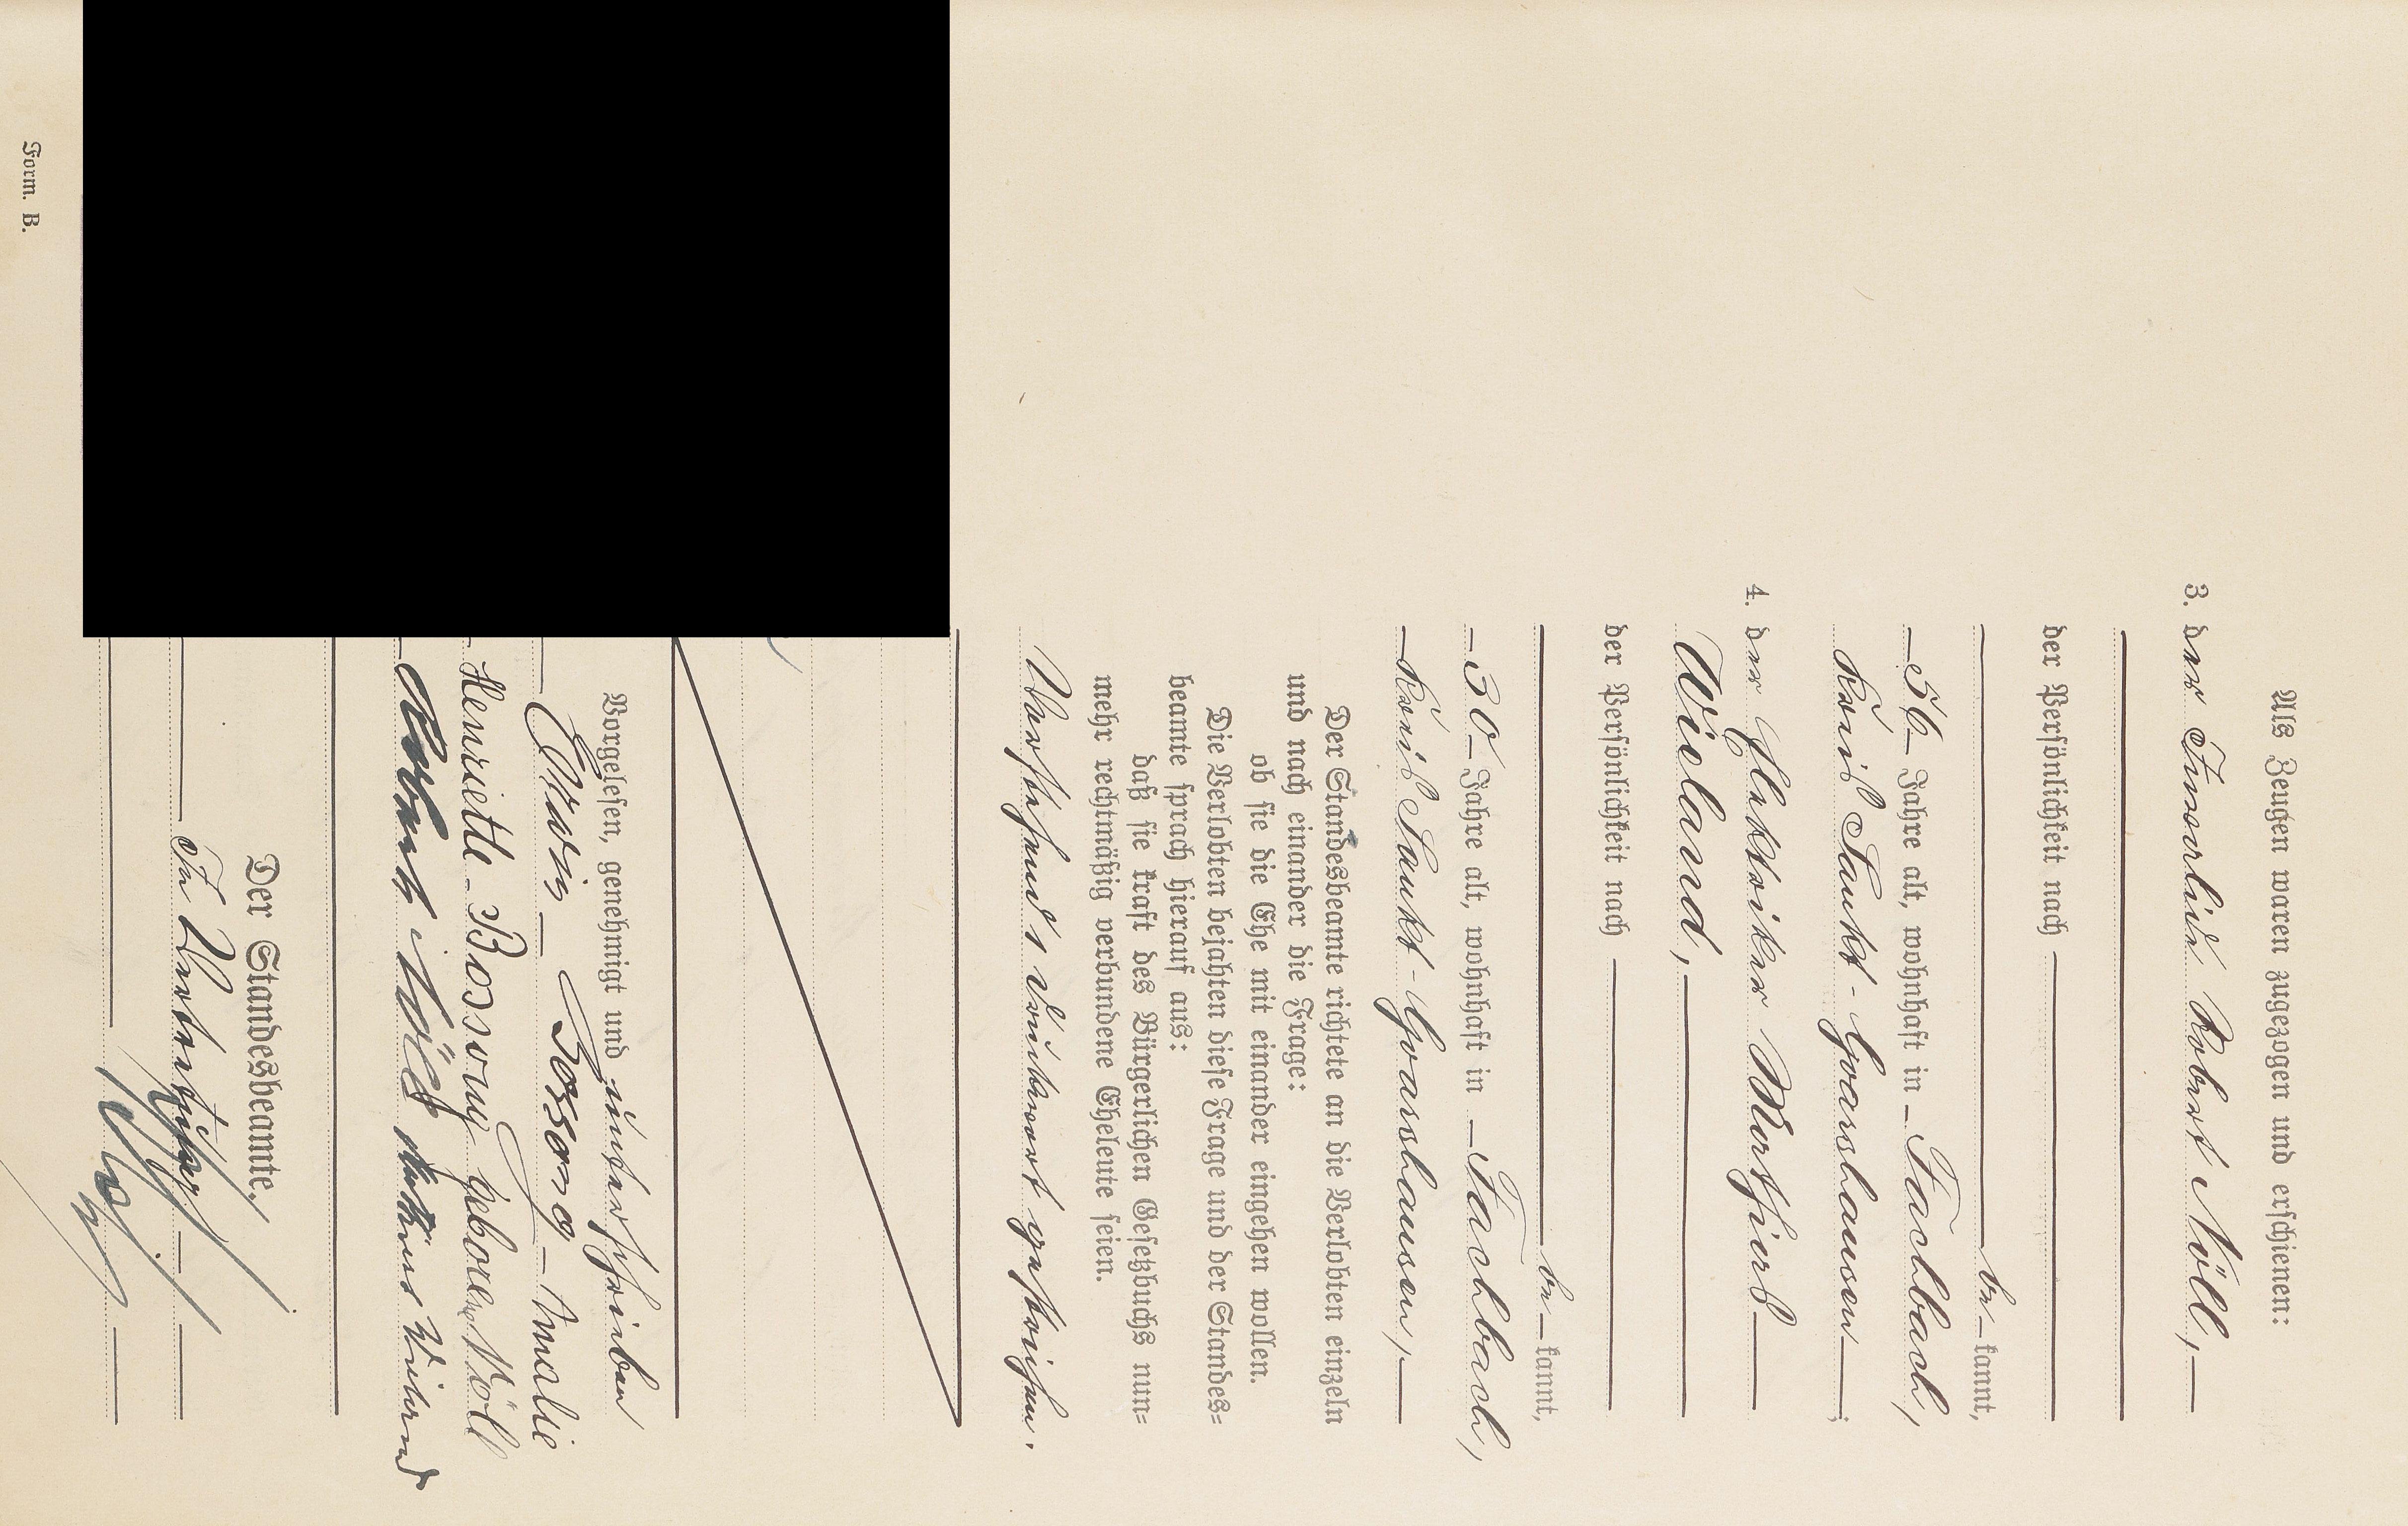 Als Zeugen waren zugezogen und erschienen:
3. der Invalide Robert Nöll,
der Persönlichkeit nach
be kannt,
56 Jahre alt, wohnhaft in Fachbach,
Kreis Sankt-Goarshausen
;
4. der Elektriker Mathias
Wieland,
der Persönlichkeit nach
be kannt,
30 Jahre alt, wohnhaft in Fachbach,
Kreis Sankt-Goarshausen,
Der Standesbeamte richtete an die Verlobten einzeln
und nach einander die Frage:
ob sie die Ehe mit einander eingehen wollen.
Die Verlobten bejahten diese Frage und der Standes=
beamte sprach hierauf aus:
daß sie kraft des Bürgerlichen Gesetzbuchs nun=
mehr rechtmäßig verbundene Eheleute seien.
Vorstehend 1 Druckwort gestrichen.
Vorgelesen, genehmigt und unterschrieben
Erwin Bossong Amalie
Henriette Bossong geborene Nöll
Robert Nöll Mathias Wieland
Der Standesbeamte.
In Vertretung
Form. B.